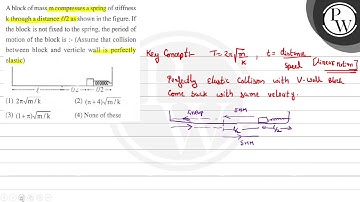 A block of mass m compresses a spring of stiffness
k through a distance ℓ/2 as shown in the figure. If
the block is not fixed to the spring, the period of
motion of the block is :- (Assume that collision
between block and verticle wall is perfectly
elastic)
ℓ ℓ/2 ℓ/2
(1) 2π√m/k (2) (π+4)√m/k
(3) (1+π)√m/k (4) None of these
Key Concept:- T = 2π√m/k , t = distance/speed [linear motion]
Perfectly Elastic Collision with V-wall block
Come back with same velocity.
SHM
ℓ/2 ℓ/2
SHM
PW